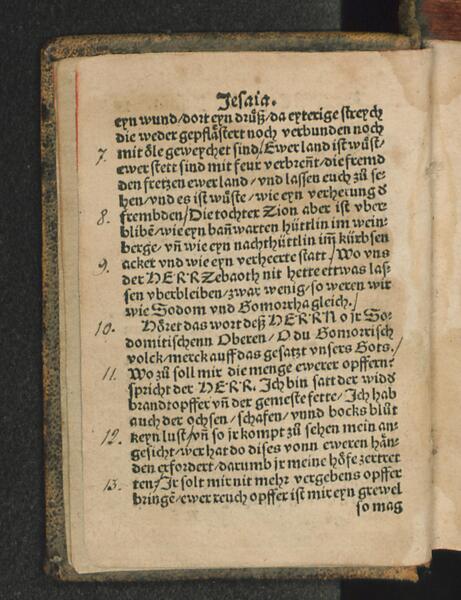 Jesaia.
eyn wund/dort eyn drüß/da eyterige streych
die weder gepflästert noch verbunden noch
7. mit öle geweychet sind/Ewer land ist wüst/
ewer stett sind mit feur verbreñt/die fremd
den fretzen ewer land/vnd lassen euch zů se-
hen/vnd es ist wüste/wie eyn verherung d
8. frembden/Die tochter Zion aber ist vber-
blibē/wie eyn bañwarten hüttlin im wein-
berge/vñ wie eyn nachthüttlin im̃ kürbsen
9. acker vnd wie eyn verheerte statt/Wo vns
der HERR Zebaoth nit hette ettwas las-
sen vberbleiben/zwar wenig/so weren wir
wie Sodom vnd Gomorrha gleich./
10. Höret das wort deß HERRN o jr So-
domitischenn Oberen/O du Gomorrisch
volck/merck auff das gesatzt vnsers Gots./
11. Wo zů soll mir die menge ewerer opffern?
spricht der HERR. Ich bin satt der widd
brandtopffer vñ der gemeste fette/Ich hab
auch der ochsen/schafen/vnnd bocks blůt
12. keyn lust/vñ so jr kompt zů sehen mein an-
gesicht/wer hat do dises vonn eweren hän-
den erfordert/darumb jr meine höfe zertret
13. ten/Jr solt mir nit mehr vergebens opffer
bringē/ewer reuch opffer ist mir eyn grewel
so mag